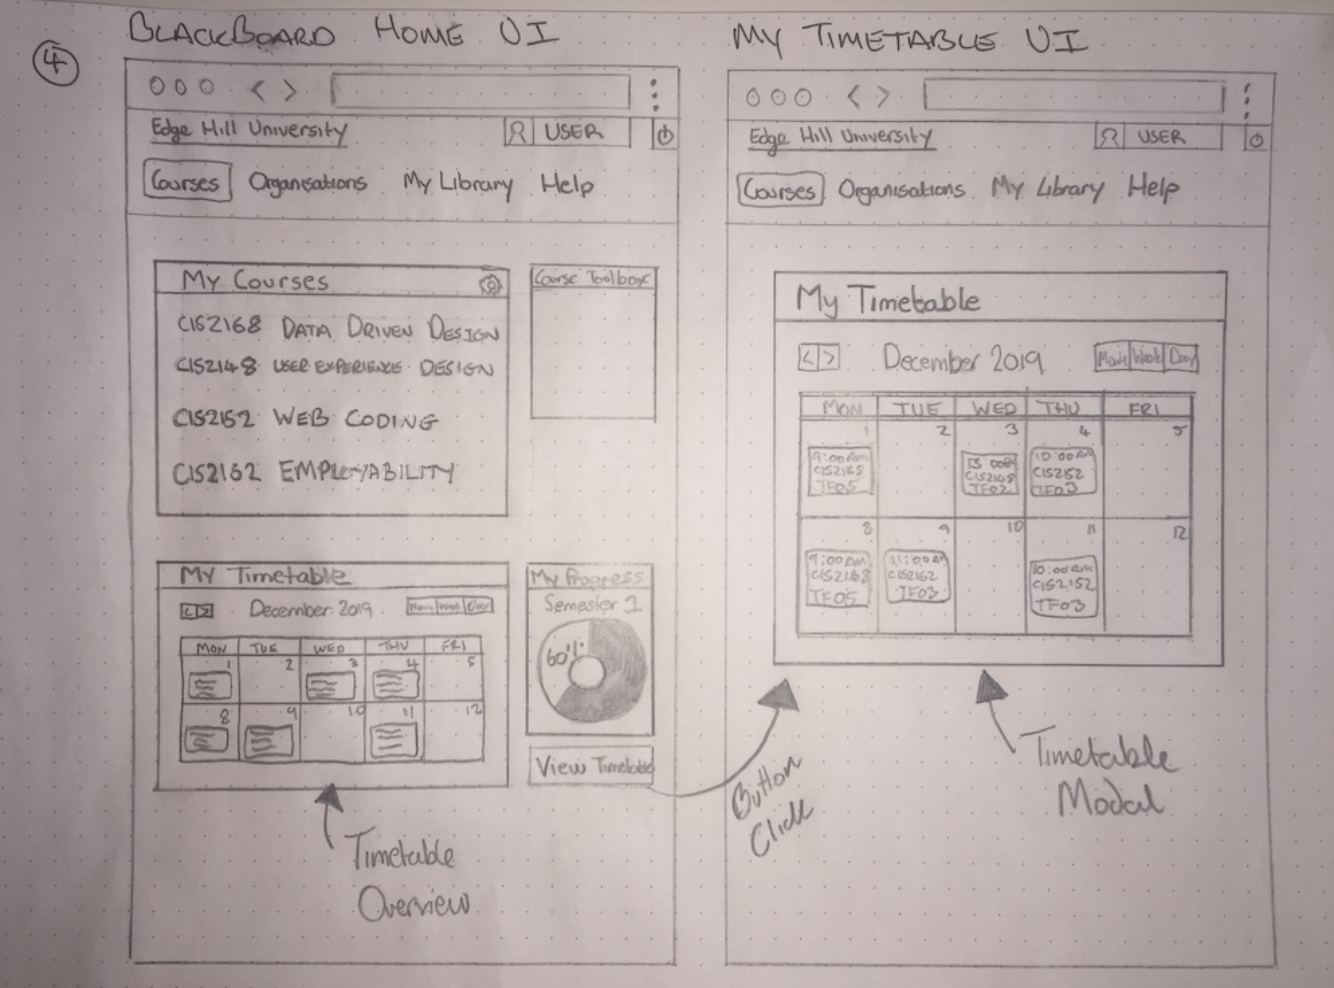 4
BLACKBOARD HOME UI
Edge Hill University
USER
Courses Organisations My Library Help
My Courses
CIS2168 DATA DRIVEN DESIGN
CIS2148 USER EXPERIENCE DESIGN
CIS2152 WEB CODING
CIS2162 EMPLOYABILITY
Course Toolbox
My Timetable
< > December 2019
MON TUE WED THU FRI
1 2 3 4 5
8 9 10 11 12
My Progress
Semester 1
60%
View Timetable
Timetable
Overview
Button
Click
MY TIMETABLE UI
Edge Hill University
USER
Courses Organisations My Library Help
My Timetable
< > December 2019 Week Day
MON TUE WED THU FRI
1 2 3 4 5
9:00AM
CIS2168
TF05
CIS2148
TF02
10:00AM
CIS2152
TF03
8 9 10 11 12
9:00AM
CIS2168
TF05
11:00AM
CIS2162
TF03
10:00AM
CIS2152
TF03
Timetable
Modal